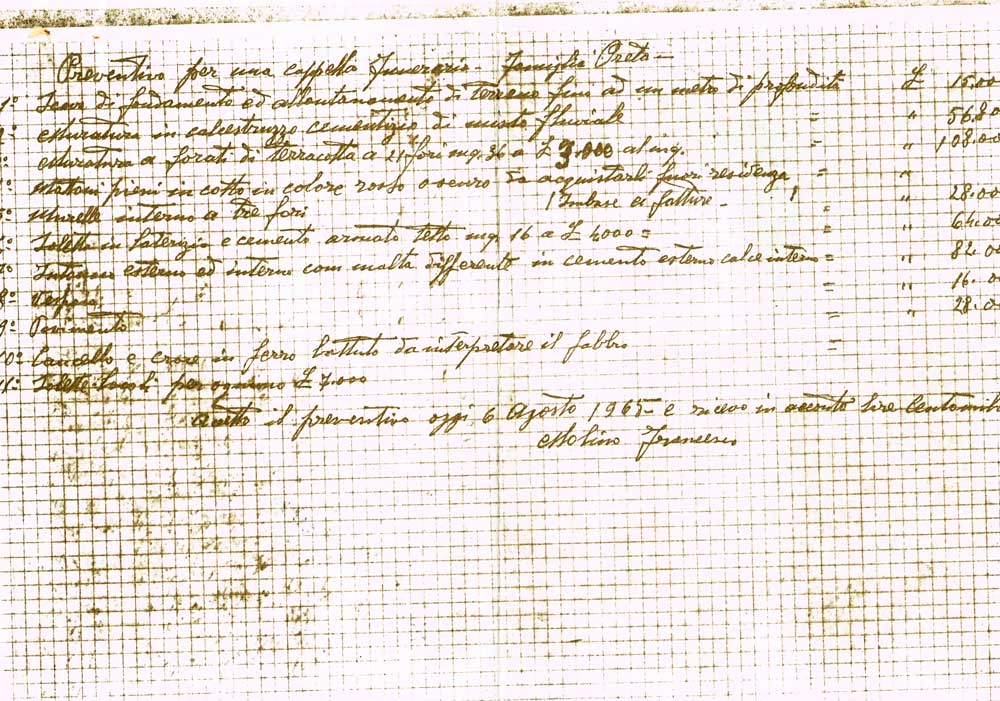 Preventivo per una cappella Funeraria - Famiglia Preta -
1º Scavo di fondamento ed allontanamento di terreno fini ad un metro di profondità £ 15.00
Muratura in calcestruzzo cementizio di misto fluviale = " 56.80
Muratura a forati di terracotta a 21 fori mq. 36 a £ 3.000 al mq. = " 108.00
Mattoni pieni in cotto in colore rosso oscuro da acquistarli fuori residenza "
Murelle interno a tre fori ( Inbase ai fatture - ) = " 28.00
Soletta in laterizio e cemento armato tetto mq. 16 a £ 4000 = = " 64.00
Intonaco esterno ed interno com malta differente in cemento esterno calce interno = " 82.00
8º Vespaio = " 16.0
9º Pavimento = " 28.0
10º Cancello e croce in ferro battuto da interpretare il fabbro =
11º Solette loculi per ognuno £ 7.000
Accetto il preventivo oggi 6 Agosto 1965 - e ricevo in acconto lire Centomil
Molino Francesco